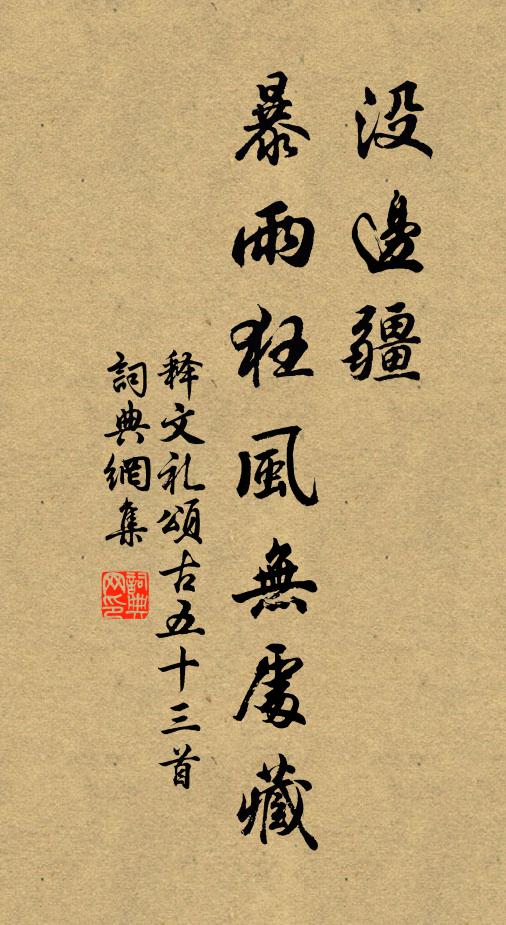 没邊疆
暴雨狂風無處藏
释文礼頌古五十三首
詞典網集
詞典网印